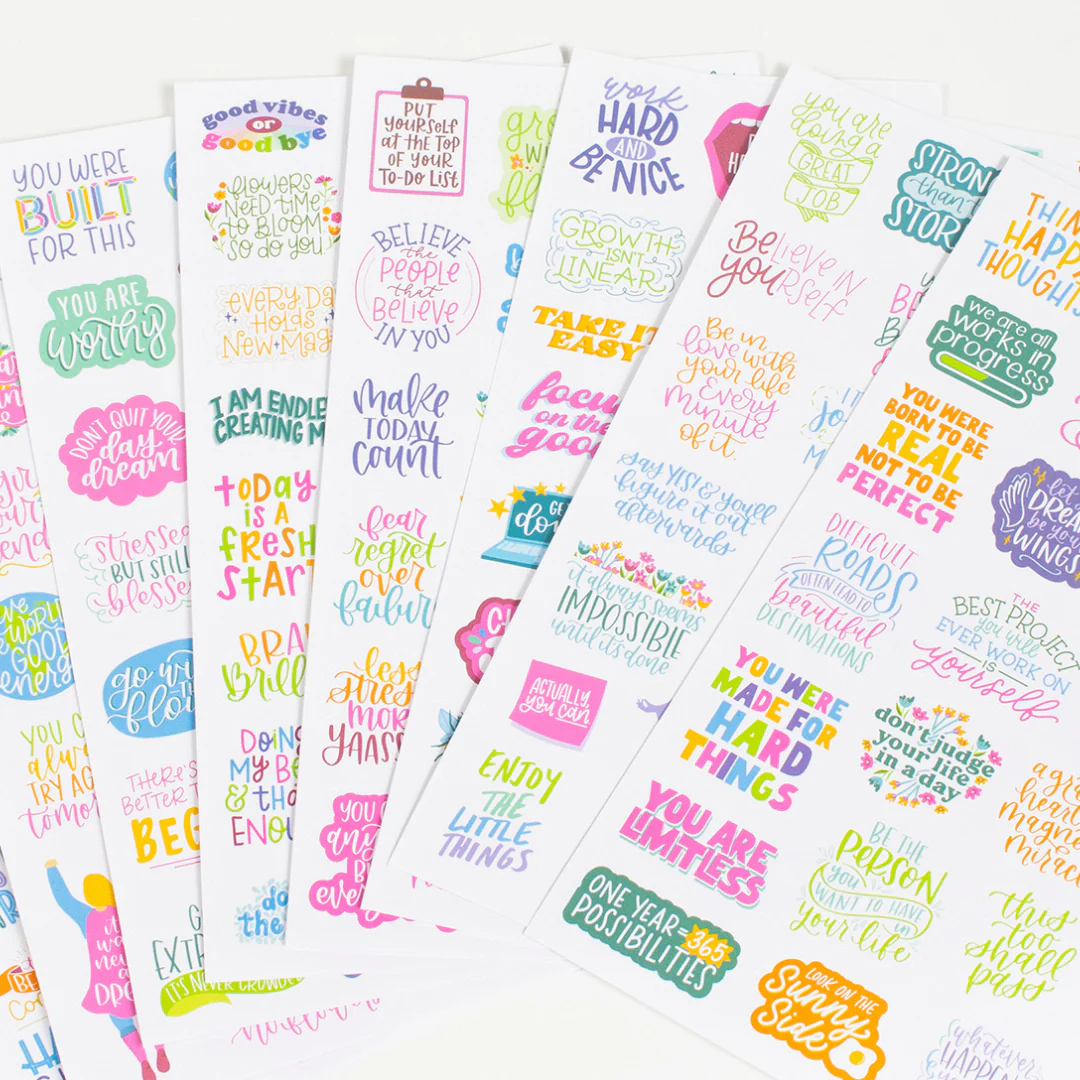 YOU WERE
BUILT
FOR THIS
YOU ARE
worthy
DON'T QUIT YOUR
day
dream
stressed
BUT STILL
blessed
go wi
flow
THERE'S
BETTER T
BEG
G
EXTR
IT'S NEVER CROWDED
good vibes
or
good bye
flowers
NEED TIME
to BLOOM
SO do you
every Da
HOLDS
New Mag
I AM ENDLE
CREATING M
today
is a
fresh
start
BRA
Brill
DOING
My Be
& tha
ENOU
do
the
PUT
YOURSELF
at the TOP
OF YOUR
TO-DO LIST
BELIEVE
the
PEOPLE
that
BELIEVE
IN YOU
make
TODAY
count
fear
regret
over
failur
less
stres
MOR
YAASS
YOU C
any
B
every
gr
W
fl
work
HARD
AND
BE NICE
GROWTH
ISN'T
LINEAR
TAKE IT
EASY
focu
on the
goo
GE
do
C
you are
doing a
GREAT
JOB
Believe IN
yourself
Be in
love with
your life
Every
minute
of it.
say YES! & you'll
figure it out
afterwards
it always seems
IMPOSSIBLE
until it's done
ACTUALLY,
you can
ENJOY
THE
LITTLE
THINGS
STRON
than
STOR
THIN
HAPP
THOUGHTS
we are all
works in
progress
YOU WERE
BORN TO BE
REAL
NOT TO BE
PERFECT
DIFFICULT
ROADS
OFTEN LEAD TO
beautiful
DESTINATIONS
YOU WERE
MADE FOR
HARD
THINGS
YOU ARE
LIMITLESS
ONE YEAR = 365
POSSIBILITIES
let
DREA
be your
WINGS
THE
BEST PROJECT
you will
EVER WORK ON
IS
yourself
don't judge
your life
in a day
BE THE
PERSON
YOU WANT TO HAVE
in
your life
LOOK ON THE
Sunny
Side
a gra
heart
magne
mirac
this
too
shall
pass
whatever
HAPPEN
YOU C
alw
TRY AG
tomor